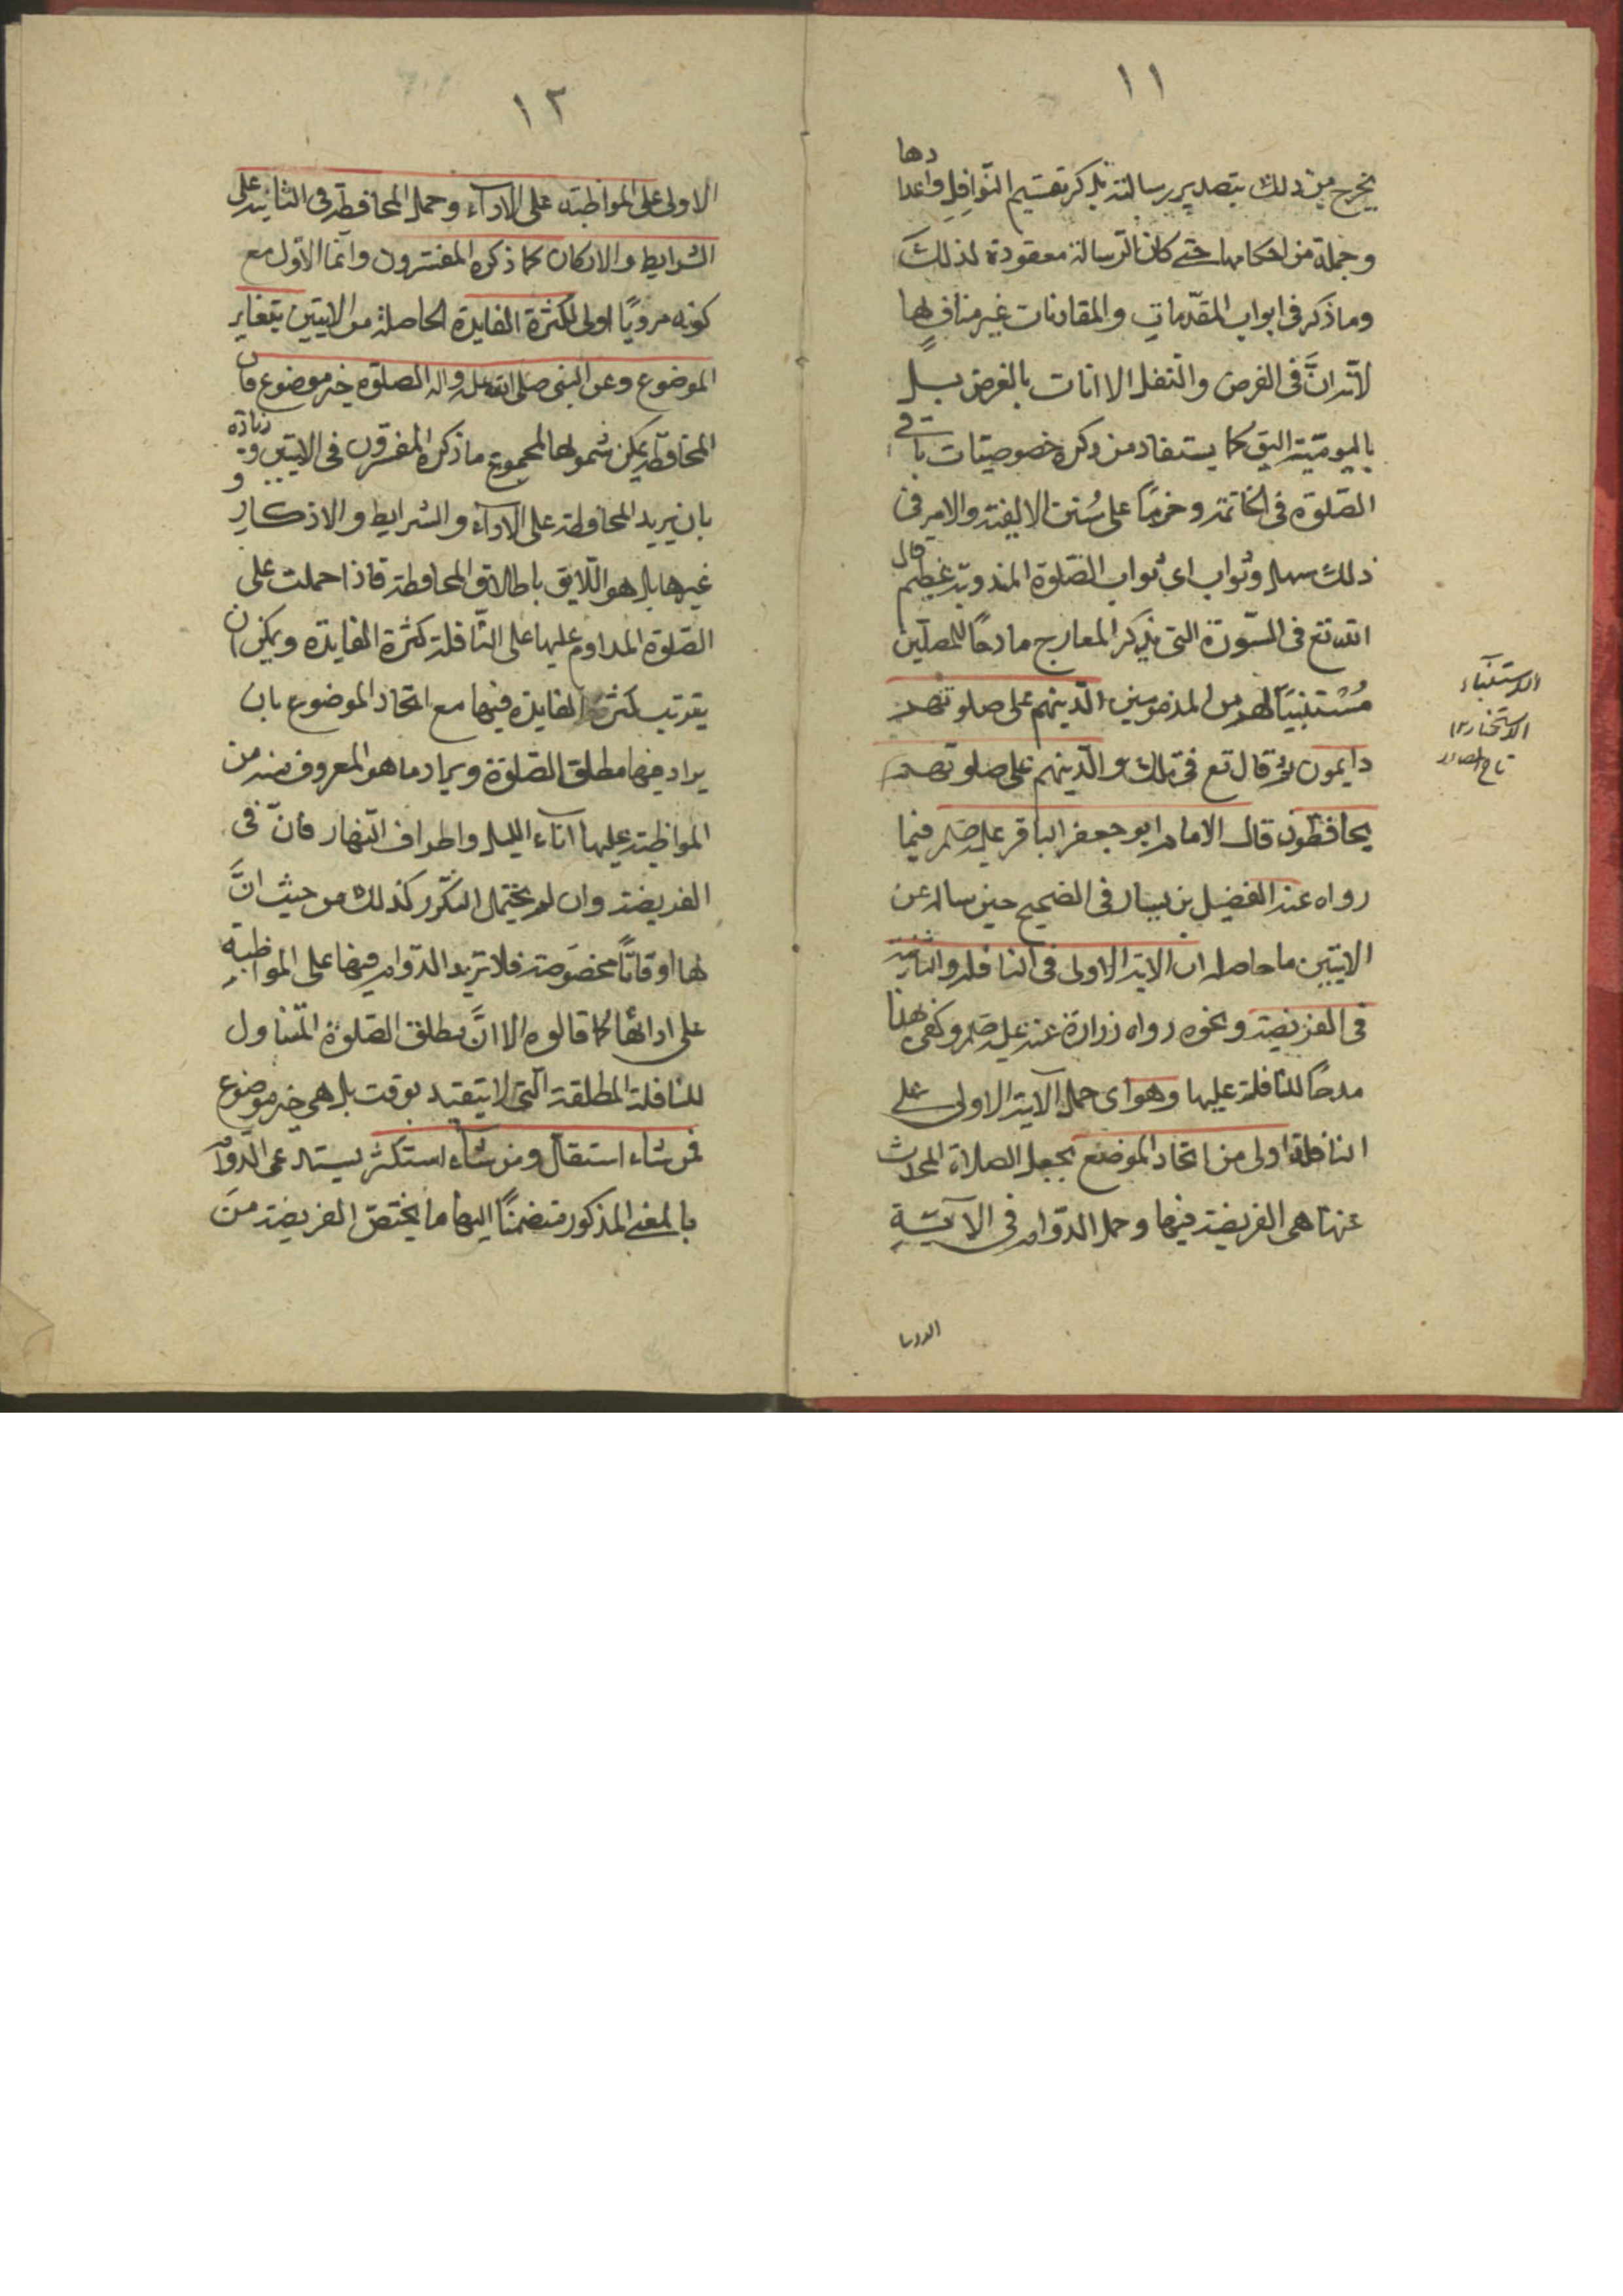 ١١
يخرج من ذلك بتصدير رسالته بذكر تقسيم النوافل واعدادها
وجملة من احكامها حتى كان الرسالة معقودة لذلك
وما ذكر في ابواب المقدمات والمقارنات غير مناف لها
لاتها في الفرض والنفل الا انات بالفرض بل
باليومية اليق كما يستفاد من ذكره خصوصيات باقي
الصلوة في الخاتمة وخرمًا على سُنن الالفية والامر في
ذلك سهل وثواب اى ثواب الصلوة المندوبة عظيم قال
الله تع في السّورة التى يذكر المعارج مادحًا للمصلّين
مُستثنيًا لهم من المذمومين الّذين هم على صلوتهم
دايمون ثم قال تع فى تلك والّذين هم على صلوتهم
يحافظون قال الامام ابو جعفر الباقر عليه فيما
رواه عنه الفضيل بن يسار فى الصحيح حين ساله عن
الايتين ما حاصله ان الاية الاولى فى النافله والثانية
فى الفريضة ونحوه رواه زرارة عنه عليه وكفى بهذا
مدحًا للنافلة عليها وهو اى حمل الآية الاولى على
النافلة اولى من اتحاد الموضع بجعل الصلاة المحدث
عنها هى الفريضة فيهما وحمل الدّوام فى الآية
الاستثناء
الاستخبار ١٢
تاج المصادر
١٢
الاولى على المواظبة على الاداء وحمل المحافظة فى الثانية على
الشرايط والاركان كما ذكره المفسّرون وانّما الاوّل مع
كونه مرويًا اولى لكثرة الفايدة الحاصلة من الايتين بتغاير
الموضوع وعن النبى صلى الله عليه واله الصلوة خير موضوع فان
المحافظة يمكن شمولها لمجموع ما ذكره المفسّرون فى الايتين وزيادة
بان يريد المحافظة على الاداء والشرايط والاذكار و
غيرها بل هو اللّايق باطلاق المحافظة فاذا حملت على
الصّلوة المداوم عليها على النّافلة كثرة الفايدة ويمكن ان
يقرتب كثرة الفايدة فيها مع اتحاد الموضوع بان
يراد فيهما مطلق الصّلوة ويراد ما هو المعروف منه من
المواظبة عليها اناء الليل واطراف النّهار فانّ فى
الفريضة وان لم يحتمل التكّرر كذلك من حيث انّ
لها اوقاتًا مخصوصة فلا تزيد الدّوام فيها على المواظبة
على ادائها كما قالوه الا انّ مطلق الصّلوة المتناول
للنافلة المطلقة التى لا يتقيد بوقت بل هى خير موضوع
فمن شاء استقال ومن شاء استكثر يستدعى الدّوام
بالمعنى المذكور متضمنًا اليها ما يختصّ الفريضة من